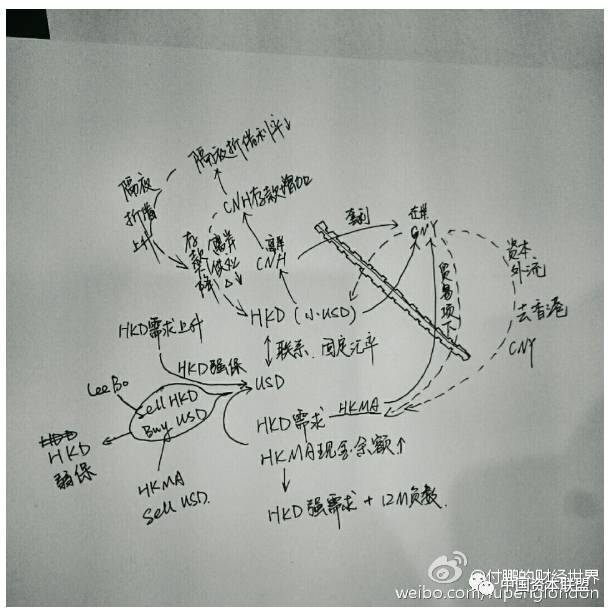 隔夜拆借利率↓
隔夜
拆借
上升
CNH存款增加
存款
离岸
CNH
套利
在岸
CNY
贸易项下
资本
外流
去香港
CNY
HKD (小USD)
HKD需求上升
联系、固定汇率
HKD强保
USD
Lee Bo
Sell HKD
Buy USD
HKD
弱保
HKMA
Sell USD.
HKD需求
HKMA
HKMA现金余额↑
HKD强需求 + 12M负数.
@付鹏的财经世界
中国资本联盟
weibo.com/fupenglondon